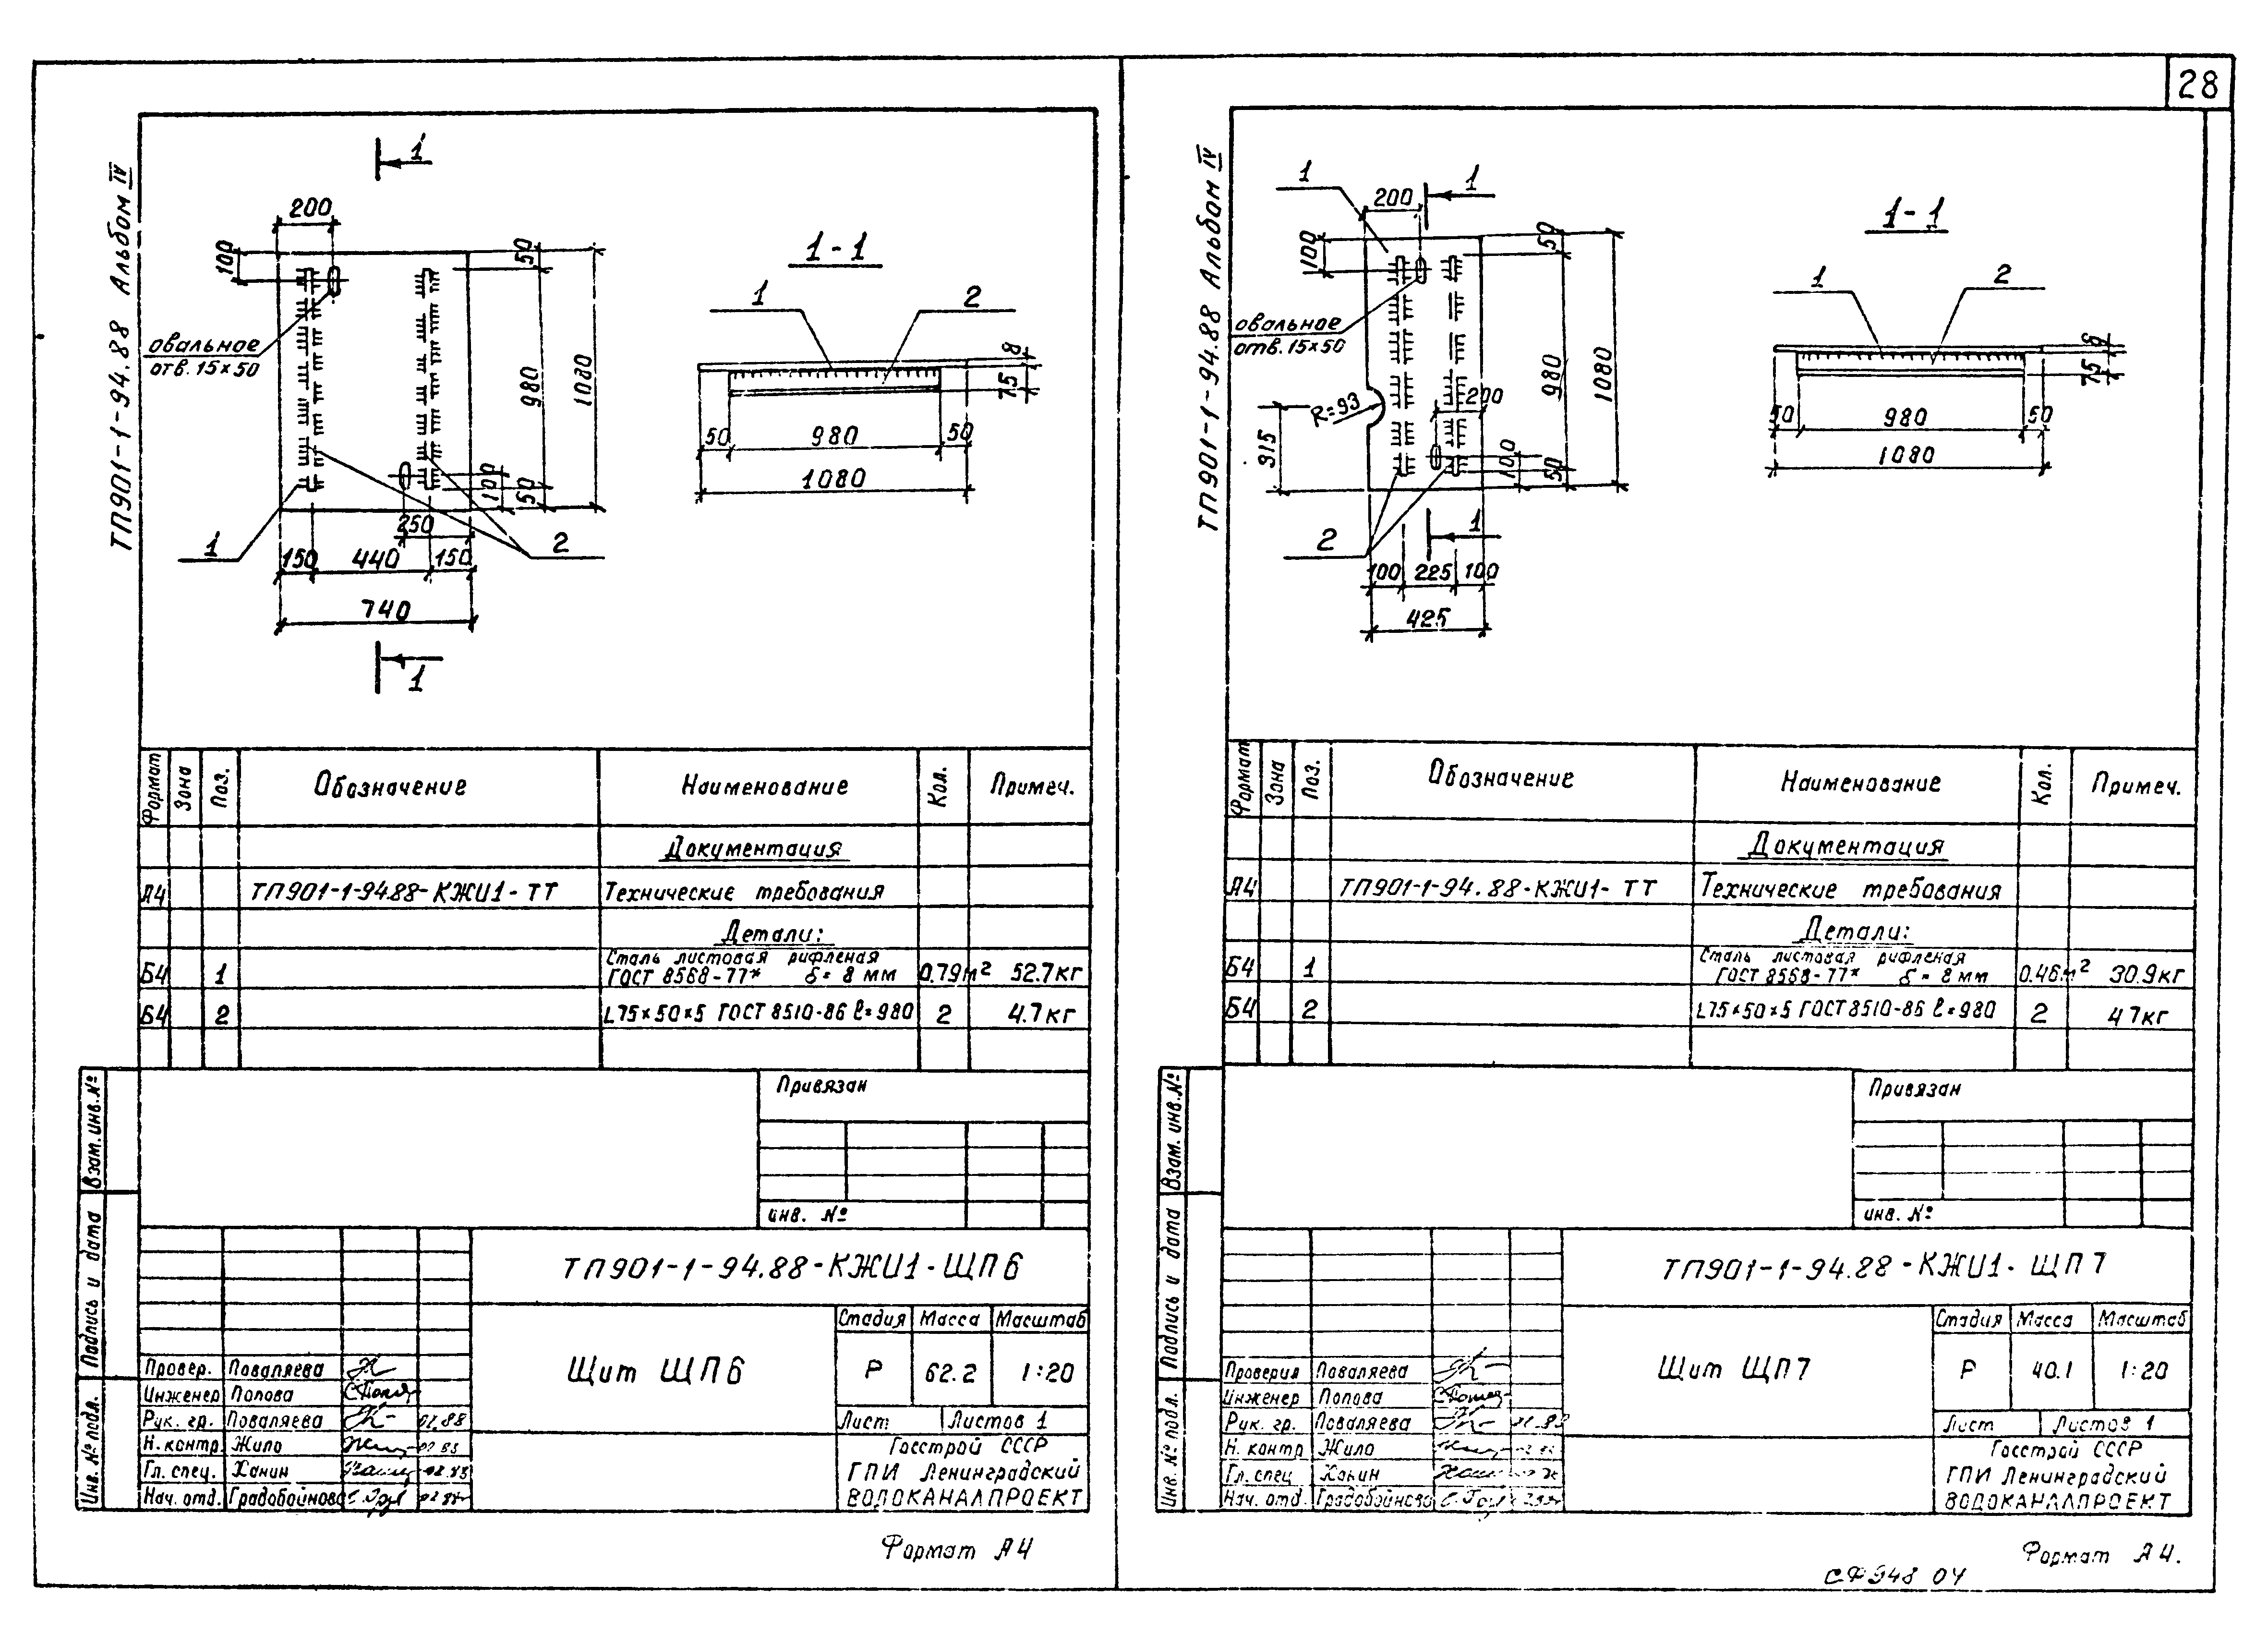 28
ТП901-1-94.88 Альбом IV
1
200
100
50
980
1080
овальное
отв. 15×50
100
50
250
1
2
150
440
150
740
1
1-1
1
2
8
75
50
980
50
1080
Формат
Зона
Поз.
Обозначение
Наименование
Кол.
Примеч.
Документация
А4 ТП901-1-94.88-КЖИ1-ТТ Технические требования
Детали:
Б4 1 Сталь листовая рифленая
ГОСТ 8568-77* δ= 8 мм 0.79м² 52.7кг
Б4 2 L75×50×5 ГОСТ 8510-86 ℓ=980 2 4.7кг
Привязан
инв. №
Взам. инв. №
Подпись и дата
Инв. № подл.
ТП901-1-94.88-КЖИ1-ЩП6
Щит ЩП6
Стадия Масса Масштаб
Р 62.2 1:20
Лист Листов 1
Госстрой СССР
ГПИ Ленинградский
ВОДОКАНАЛПРОЕКТ
Провер. Поваляева
Инженер Попова
Рук. гр. Поваляева 02.88
Н. контр. Жило
Гл. спец. Ханин
Нач. отд. Градобойнова
Формат А4
ТП901-1-94.88 Альбом IV
1
1
200
100
50
980
1080
овальное
отв. 15×50
R=93
200
315
100
50
2
1
100
225
100
425
1-1
1
2
8
75
50
980
50
1080
Формат
Зона
Поз.
Обозначение
Наименование
Кол.
Примеч.
Документация
А4 ТП901-1-94.88-КЖИ1-ТТ Технические требования
Детали:
Б4 1 Сталь листовая рифленая
ГОСТ 8568-77* δ= 8 мм 0.46м² 30.9кг
Б4 2 L75×50×5 ГОСТ 8510-86 ℓ=980 2 4.7кг
Привязан
инв. №
Взам. инв. №
Подпись и дата
Инв. № подл.
ТП901-1-94.88-КЖИ1-ЩП7
Щит ЩП7
Стадия Масса Масштаб
Р 40.1 1:20
Лист Листов 1
Госстрой СССР
ГПИ Ленинградский
ВОДОКАНАЛПРОЕКТ
Проверил Поваляева
Инженер Попова
Рук. гр. Поваляева
Н. контр Жило
Гл. спец Ханин
Нач. отд. Градобойнова
Формат А4.
СФ 948 04